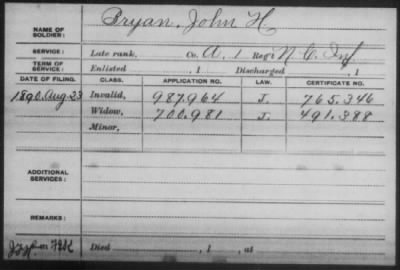 NAME OF SOLDIER: Pryan, John H
SERVICE: Late rank, Co. A, 1 Reg't N.C. Inf
TERM OF SERVICE: Enlisted , 1 Discharged , 1
DATE OF FILING. CLASS. APPLICATION NO. LAW. CERTIFICATE NO.
1890, Aug 23 Invalid, 987.964 J. 765.346
Widow, 700.981 J. 491.388
Minor,
ADDITIONAL SERVICES:
REMARKS:
Died , 1 , at